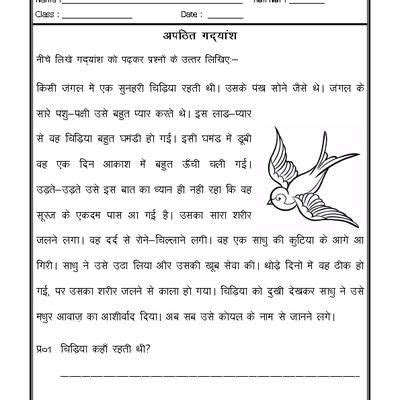 Class : Date :
अपठित गद्यांश
नीचे लिखे गद्यांश को पढ़कर प्रश्नों के उत्तर लिखिए:–
किसी जंगल में एक सुनहरी चिड़िया रहती थी। उसके पंख सोने जैसे थे। जंगल के
सारे पशु–पक्षी उसे बहुत प्यार करते थे। इस लाड–प्यार
से वह चिड़िया बहुत घमंडी हो गई। इसी घमंड में डूबी
वह एक दिन आकाश में बहुत ऊँची चली गई।
उड़ते–उड़ते उसे इस बात का ध्यान ही नही रहा कि वह
सूरज के एकदम पास आ गई है। उसका सारा शरीर
जलने लगा। वह दर्द से रोने–चिल्लाने लगी। वह एक साधु की कुटिया के आगे आ
गिरी। साधु ने उसे उठा लिया और उसकी खूब सेवा की। थोड़े दिनों में वह ठीक हो
गई, पर उसका शरीर जलने से काला हो गया। चिड़िया को दुखी देखकर साधु ने उसे
मधुर आवाज़ का आशीर्वाद दिया। अब सब उसे कोयल के नाम से जानने लगे।
प्र०1 चिड़िया कहाँ रहती थी?